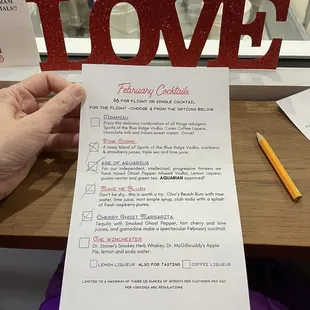 LOVE
February Cocktails
$8 FOR FLIGHT OR SINGLE COCKTAIL
FOR THE FLIGHT - CHOOSE 4 FROM THE OPTIONS BELOW
Enjoy this delicious combination of all things indulgent.
Spirits of the Blue Ridge Vodka, Curio Coffee Liqueur,
chocolate milk and Italian sweet cream. Divine!
PINK
A boozy blend of Spirits of the Blue Ridge Vodka, cranberry
& strawberry juices, triple sec and lime juice.
AGE OF AQUARIUS
For our independent, intellectual, progressive thinkers we
have mixed Ghost Pepper Infused Vodka, Lemon Liqueur,
guava nectar and green tea. AQUARIAN approved!
MAKE ME BLUSH
Don't be shy...this is worth a try. Rum with rose
water, lime juice, mint simple syrup, club soda with a splash
of fresh raspberry puree.
CHERRY GHOST MARGARITA
Tequila with Smoked Ghost Pepper, tart cherry and lime
juices, and grenadine make a spectacular February cocktail.
THE WINCHESTER
Dr. Stoner's Smokey Herb Whiskey, Dr. McGillicuddy's Apple
Pie, lemon and soda water.
LEMON LIQUEUR ALSO FOR TASTING COFFEE LIQUEUR
LIMITED TO A MAXIMUM OF THREE (3) OUNCES OF SPIRITS PER CUSTOMER PER DAY
PER VIRGINIA ABC REGULATIONS